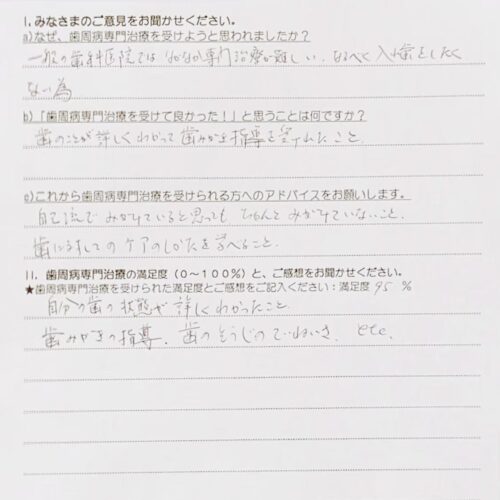 I.みなさまのご意見をお聞かせください。
a)なぜ、歯周病専門治療を受けようと思われましたか？
一般の歯科医院では なかなか専門治療が難しい、なるべく入れ歯をしたく
ない為
b)「歯周病専門治療を受けて良かった！」と思うことは何ですか？
歯のことが詳しくわかって歯みがきを指導を受けれたこと
c)これから歯周病専門治療を受けられる方へのアドバイスをお願いします。
自己流で みがけていると思っても ちゃんと みがけていないこと、
歯にたいしての ケアのしかたを学べること、
II. 歯周病専門治療の満足度（0～100％）と、ご感想をお聞かせください。
★歯周病専門治療を受けられた満足度とご感想をご記入ください：満足度 95 ％
自分の歯の状態が詳しくわかったこと、
歯みがきの指導、歯のそうじのていねいさ、etc,